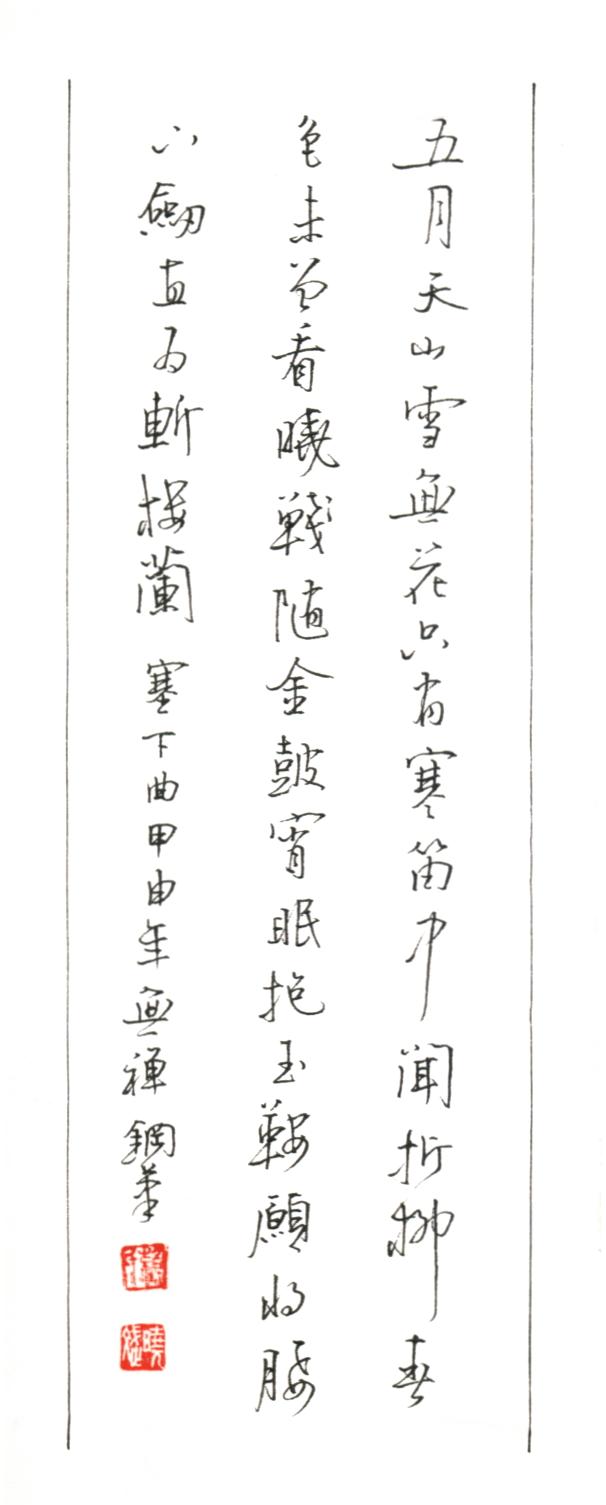 五月天山雪無花只有寒笛中聞折柳春
色未曾看曉戰隨金鼓宵眠抱玉鞍願將腰
下劒直為斬樓蘭 塞下曲甲申年無禪鋼筆